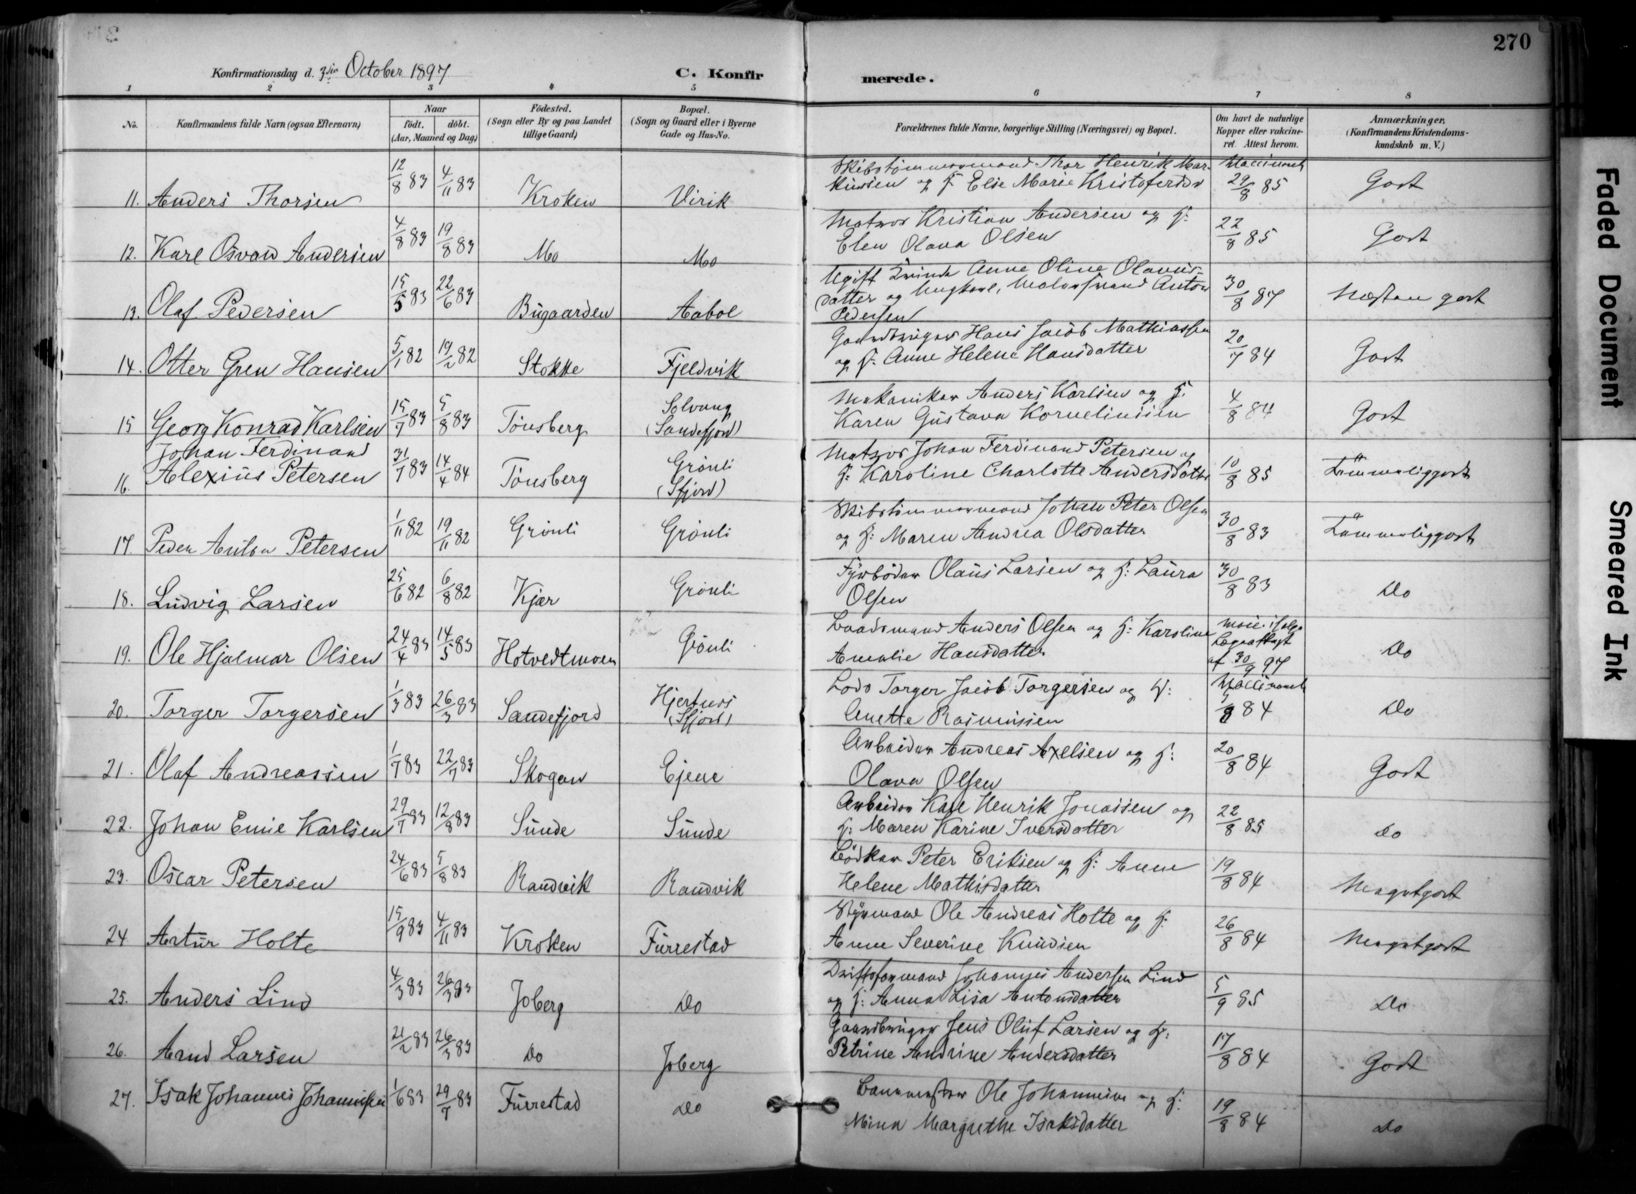 270
Konfirmationsdag d. 3die October 1897
C. Konfirmerede.
1 2 3 4 5 6 7 8
No.
Konfirmandens fulde Navn (ogsaa Efternavn)
Naar
født. døbt.
(Aar, Maaned og Dag)
Fødested.
(Sogn eller By og paa Landet
tillige Gaard)
Bopæl.
(Sogn og Gaard eller i Byerne
Gade og Hus-No.
Forældrenes fulde Navne, borgerlige Stilling (Næringsvei) og Bopæl.
Om havt de naturlige
Kopper eller vakcine-
ret. Attest herom.
Anmærkninger.
(Konfirmandens Kristendoms-
kundskab m. V.)
11. Anders Thorsen 12/8 83 4/11 83 Kroken Virik
Skibstømmermand Thor Henrik Mar-
kussen og H: Else Marie Kristofersdr
Vaccineret
29/8 85 Godt
12. Karl Osvald Andersen 4/8 83 19/8 83 Mo Mo
Matros Kristian Andersen og H:
Elen Olava Olsen
22/8 85 Godt
13. Olaf Pedersen 15/5 83 22/6 83 Bugaarden Aabol
Ugift Kvinde Anne Oline Olavus-
datter og Ungkarl, Anton
Pedersen
30/8 87 Næsten godt
14. Otter Gren Hansen 5/1 82 19/2 82 Stokke Fjeldvik
Gaardbruger Hans Jacob Mathiassen
og H: Anne Helene Hansdatter
20/7 84 Godt
15 Georg Konrad Karlsen 15/7 83 5/8 83 Tønsberg Solvang
(Sandefjord)
Mekaniker Anders Karlsen og H:
Karen Gustava Korneliussen
4/8 84 Godt
Johan Ferdinand
16. Alexius Petersen 31/7 83 14/4 84 Tønsberg Grønli
(Sfjord)
Matros Johan Ferdinand Petersen og
H: Karoline Charlotte Andersdatter
10/8 85 Temmeliggodt
17 Peder Anton Petersen 1/11 82 19/11 82 Grønli Grønli
Skibstømmermand Johan Peter Olsen
og H: Maren Andrea Olsdatter
30/8 83 Temmeliggodt
18. Ludvig Larsen 25/6 82 6/8 82 Kjær Grønli
Fyrbøder Olaus Larsen og H: Laura
Olsen
30/8 83 Do
19. Ole Hjalmar Olsen 24/4 83 14/5 83 Hotvedtmoen Grønli
Baadsmand Anders Olsen og H: Karoline
Amalie Hansdatter
af 30/9 97 Do
20. Torger Torgersen 1/3 83 26/3 83 Sandefjord Hjertnes
(Sfjord)
Lods Torger Jacob Torgersen og H:
Anette Rasmussen
Vaccineret
84 Do
21. Olaf Andreassen 1/7 83 22/7 83 Skogan Ejene
Arbeider Andreas Axelsen og H:
Olava Olsen
20/8 84 Godt
22. Johan Emil Karlsen 29/7 83 12/8 83 Sunde Sunde
Arbeider Karl Henrik Jonassen og
H: Maren Karine Iversdatter
22/8 85 Do
23. Oscar Petersen 24/6 83 5/8 83 Randvik Randvik
Bødker Peter Eriksen og H: Anne
Helene Mathisdatter
19/8 84 Megetgodt
24 Artur Holte 15/9 83 4/11 83 Kroken Furrestad
Styrmand Ole Andreas Holte og H:
Anne Severine Knudsen
26/8 84 Megetgodt
25. Anders Lind 4/3 83 26/3 83 Joberg Do
Driftsformand Johannes Andersen Lind
og H: Anna Lisa Antonsdatter
5/9 85 Do
26. Arnd Larsen 21/2 83 26/3 83 Do Joberg
Gaardbruger Jens Oluf Larsen og H:
Petrine Andrine Andersdatter
17/8 84 Godt
27. Isak Johannes Johannesen 1/6 83 29/7 83 Furrestad Do
Ole Johannesen og H:
Mina Margrethe Isaksdatter
19/8 84 Do
Faded Document
Smeared Ink